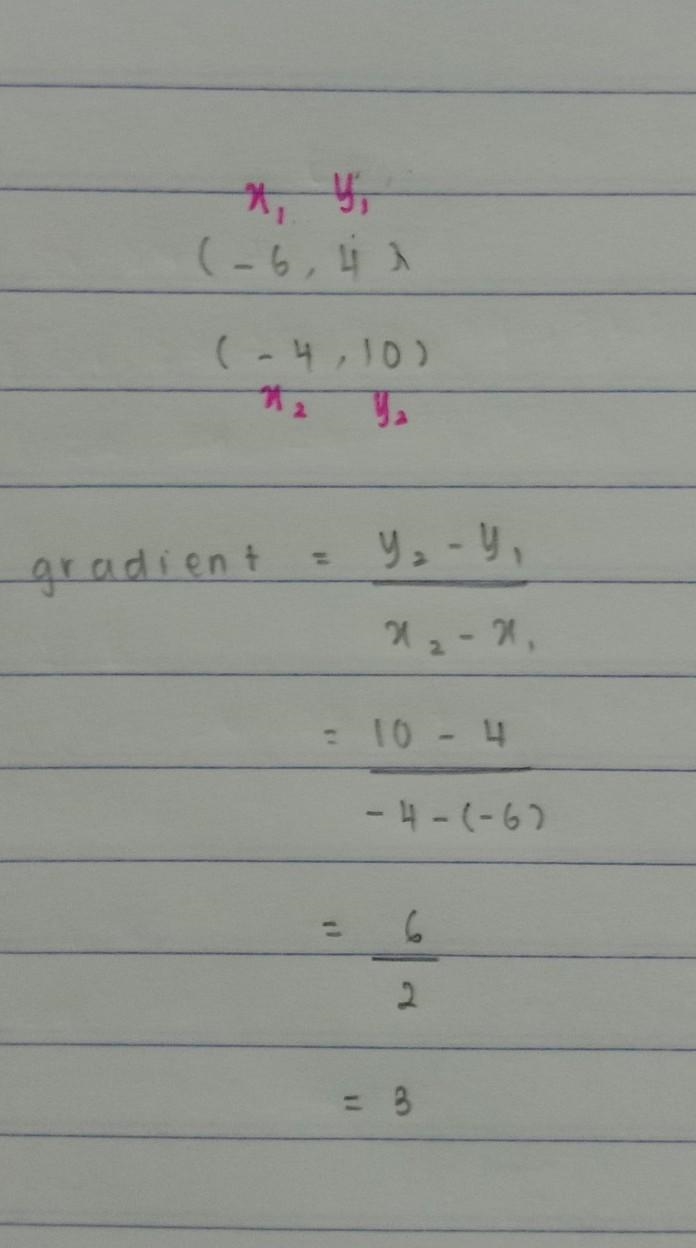 x₁ y₁
(-6, 4)
(-4, 10)
x₂ y₂
gradient = y₂ - y₁
x₂ - x₁
= 10 - 4
-4 - (-6)
= 6
2
= 3